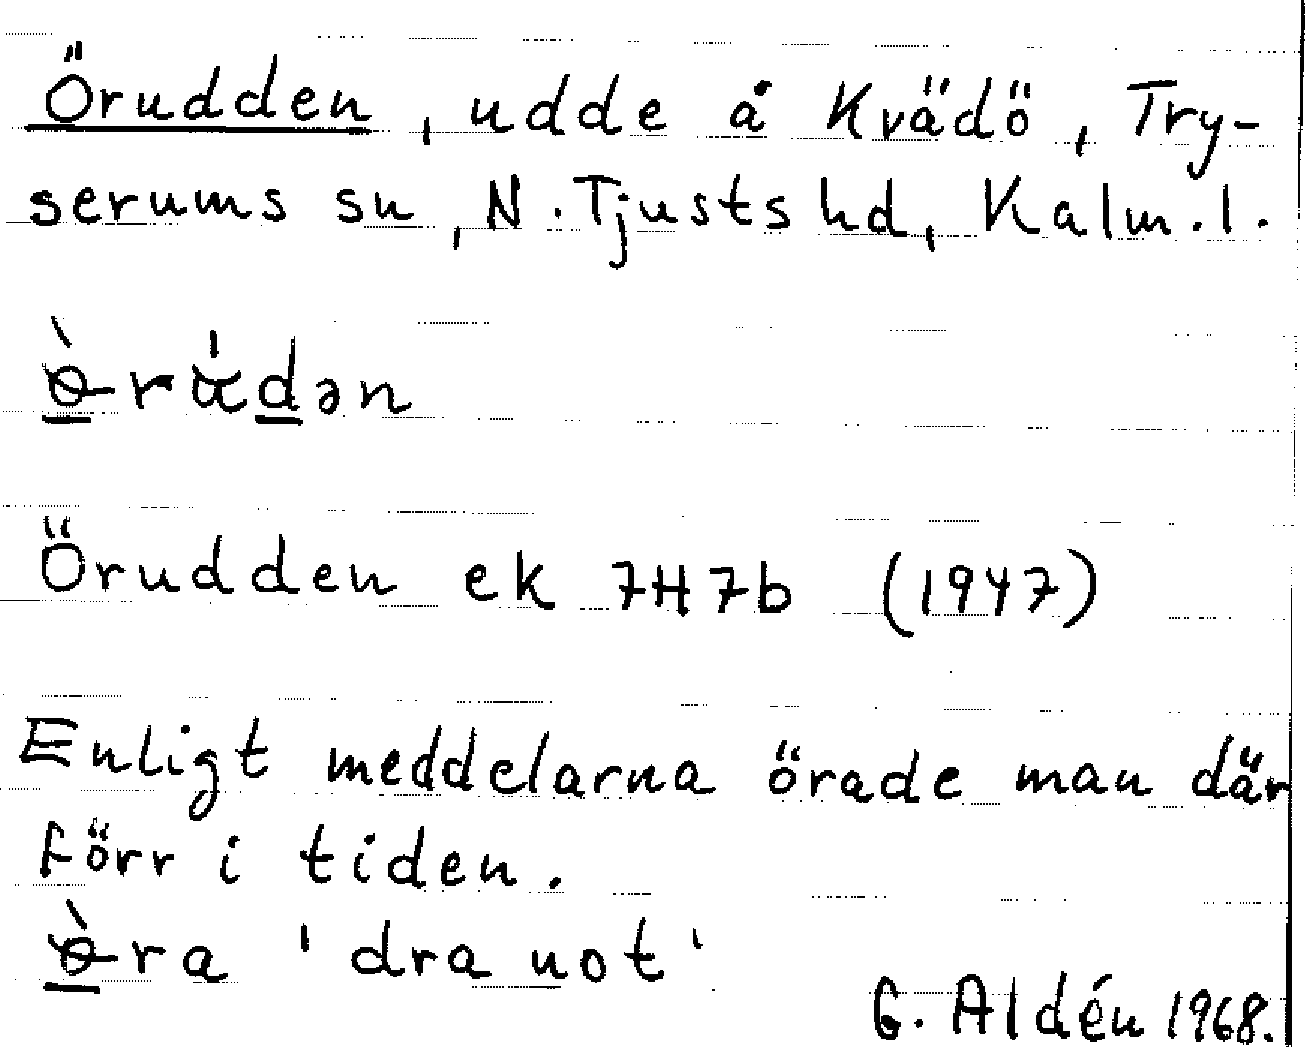 Örudden, udde å Kvädö, Try-
serums sn, N. Tjusts hd, Kalm. l.
Örudden ek 7H7b (1947)
Enligt meddelarna örade man där
förr i tiden.
'dra not'
G. Aldén 1968.